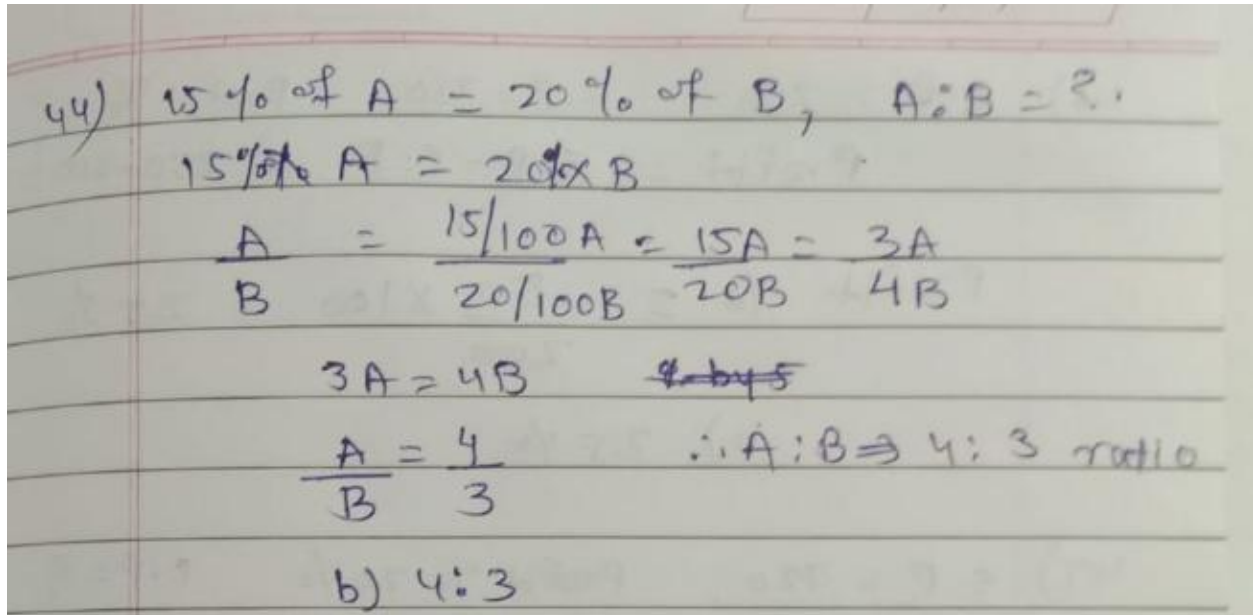 44) 15 % of A = 20 % of B, A:B = ?.
15% A = 20% x B
A/B = 15/100 A / 20/100B = 15A / 20B = 3A / 4B
3A = 4B
A/B = 4/3 ∴ A : B ⇒ 4 : 3 ratio
b) 4:3